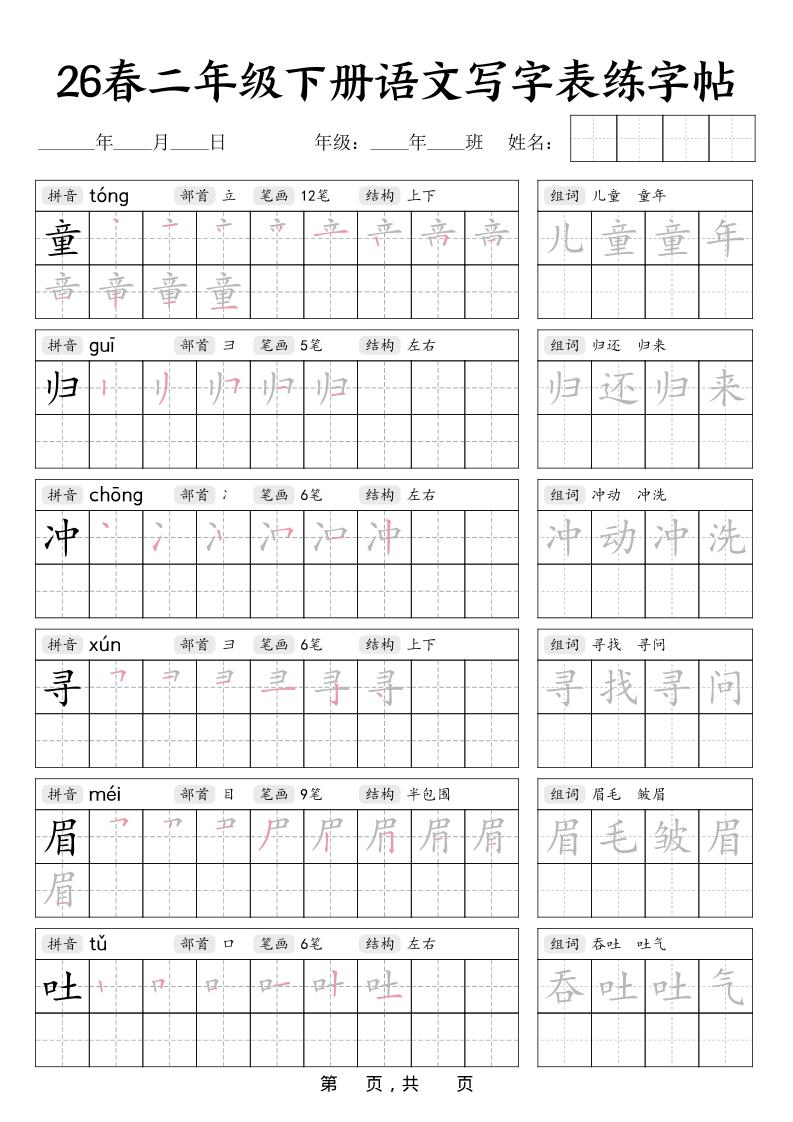 26春二年级下册语文写字表练字帖
______年____月____日 年级：____年____班 姓名：
拼音 tóng 部首 立 笔画 12笔 结构 上下
组词 儿童 童年
童
儿童童年
拼音 guī 部首 彐 笔画 5笔 结构 左右
组词 归还 归来
归
归还归来
拼音 chōng 部首 冫 笔画 6笔 结构 左右
组词 冲动 冲洗
冲
冲动冲洗
拼音 xún 部首 彐 笔画 6笔 结构 上下
组词 寻找 寻问
寻
寻找寻问
拼音 méi 部首 目 笔画 9笔 结构 半包围
组词 眉毛 皱眉
眉
眉毛皱眉
拼音 tǔ 部首 口 笔画 6笔 结构 左右
组词 吞吐 吐气
吐
吞吐吐气
第 页，共 页